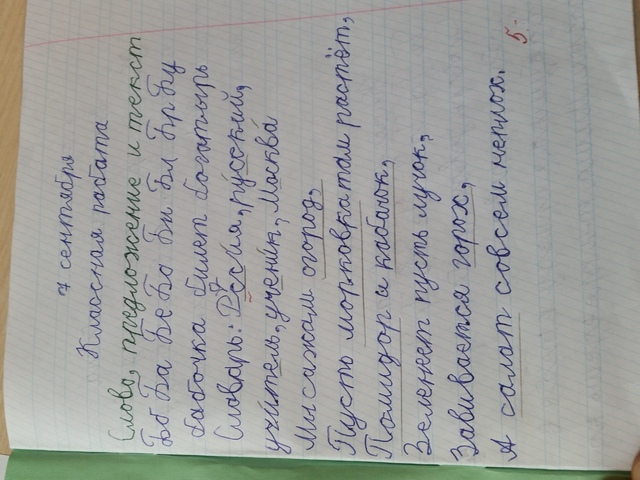 7 сентября
Классная работа
Слово, предложение и текст
Бб Ба Бе Бо Би Бл Бр Бу
бабочка билет богатырь
Словарь: Россия, русский,
учитель, ученик, Москва
Мы сажали огород,
Пусть морковка там растёт,
Помидор и кабачок,
Зеленеет пусть лучок,
Завивается горох,
А салат совсем неплох.
5-